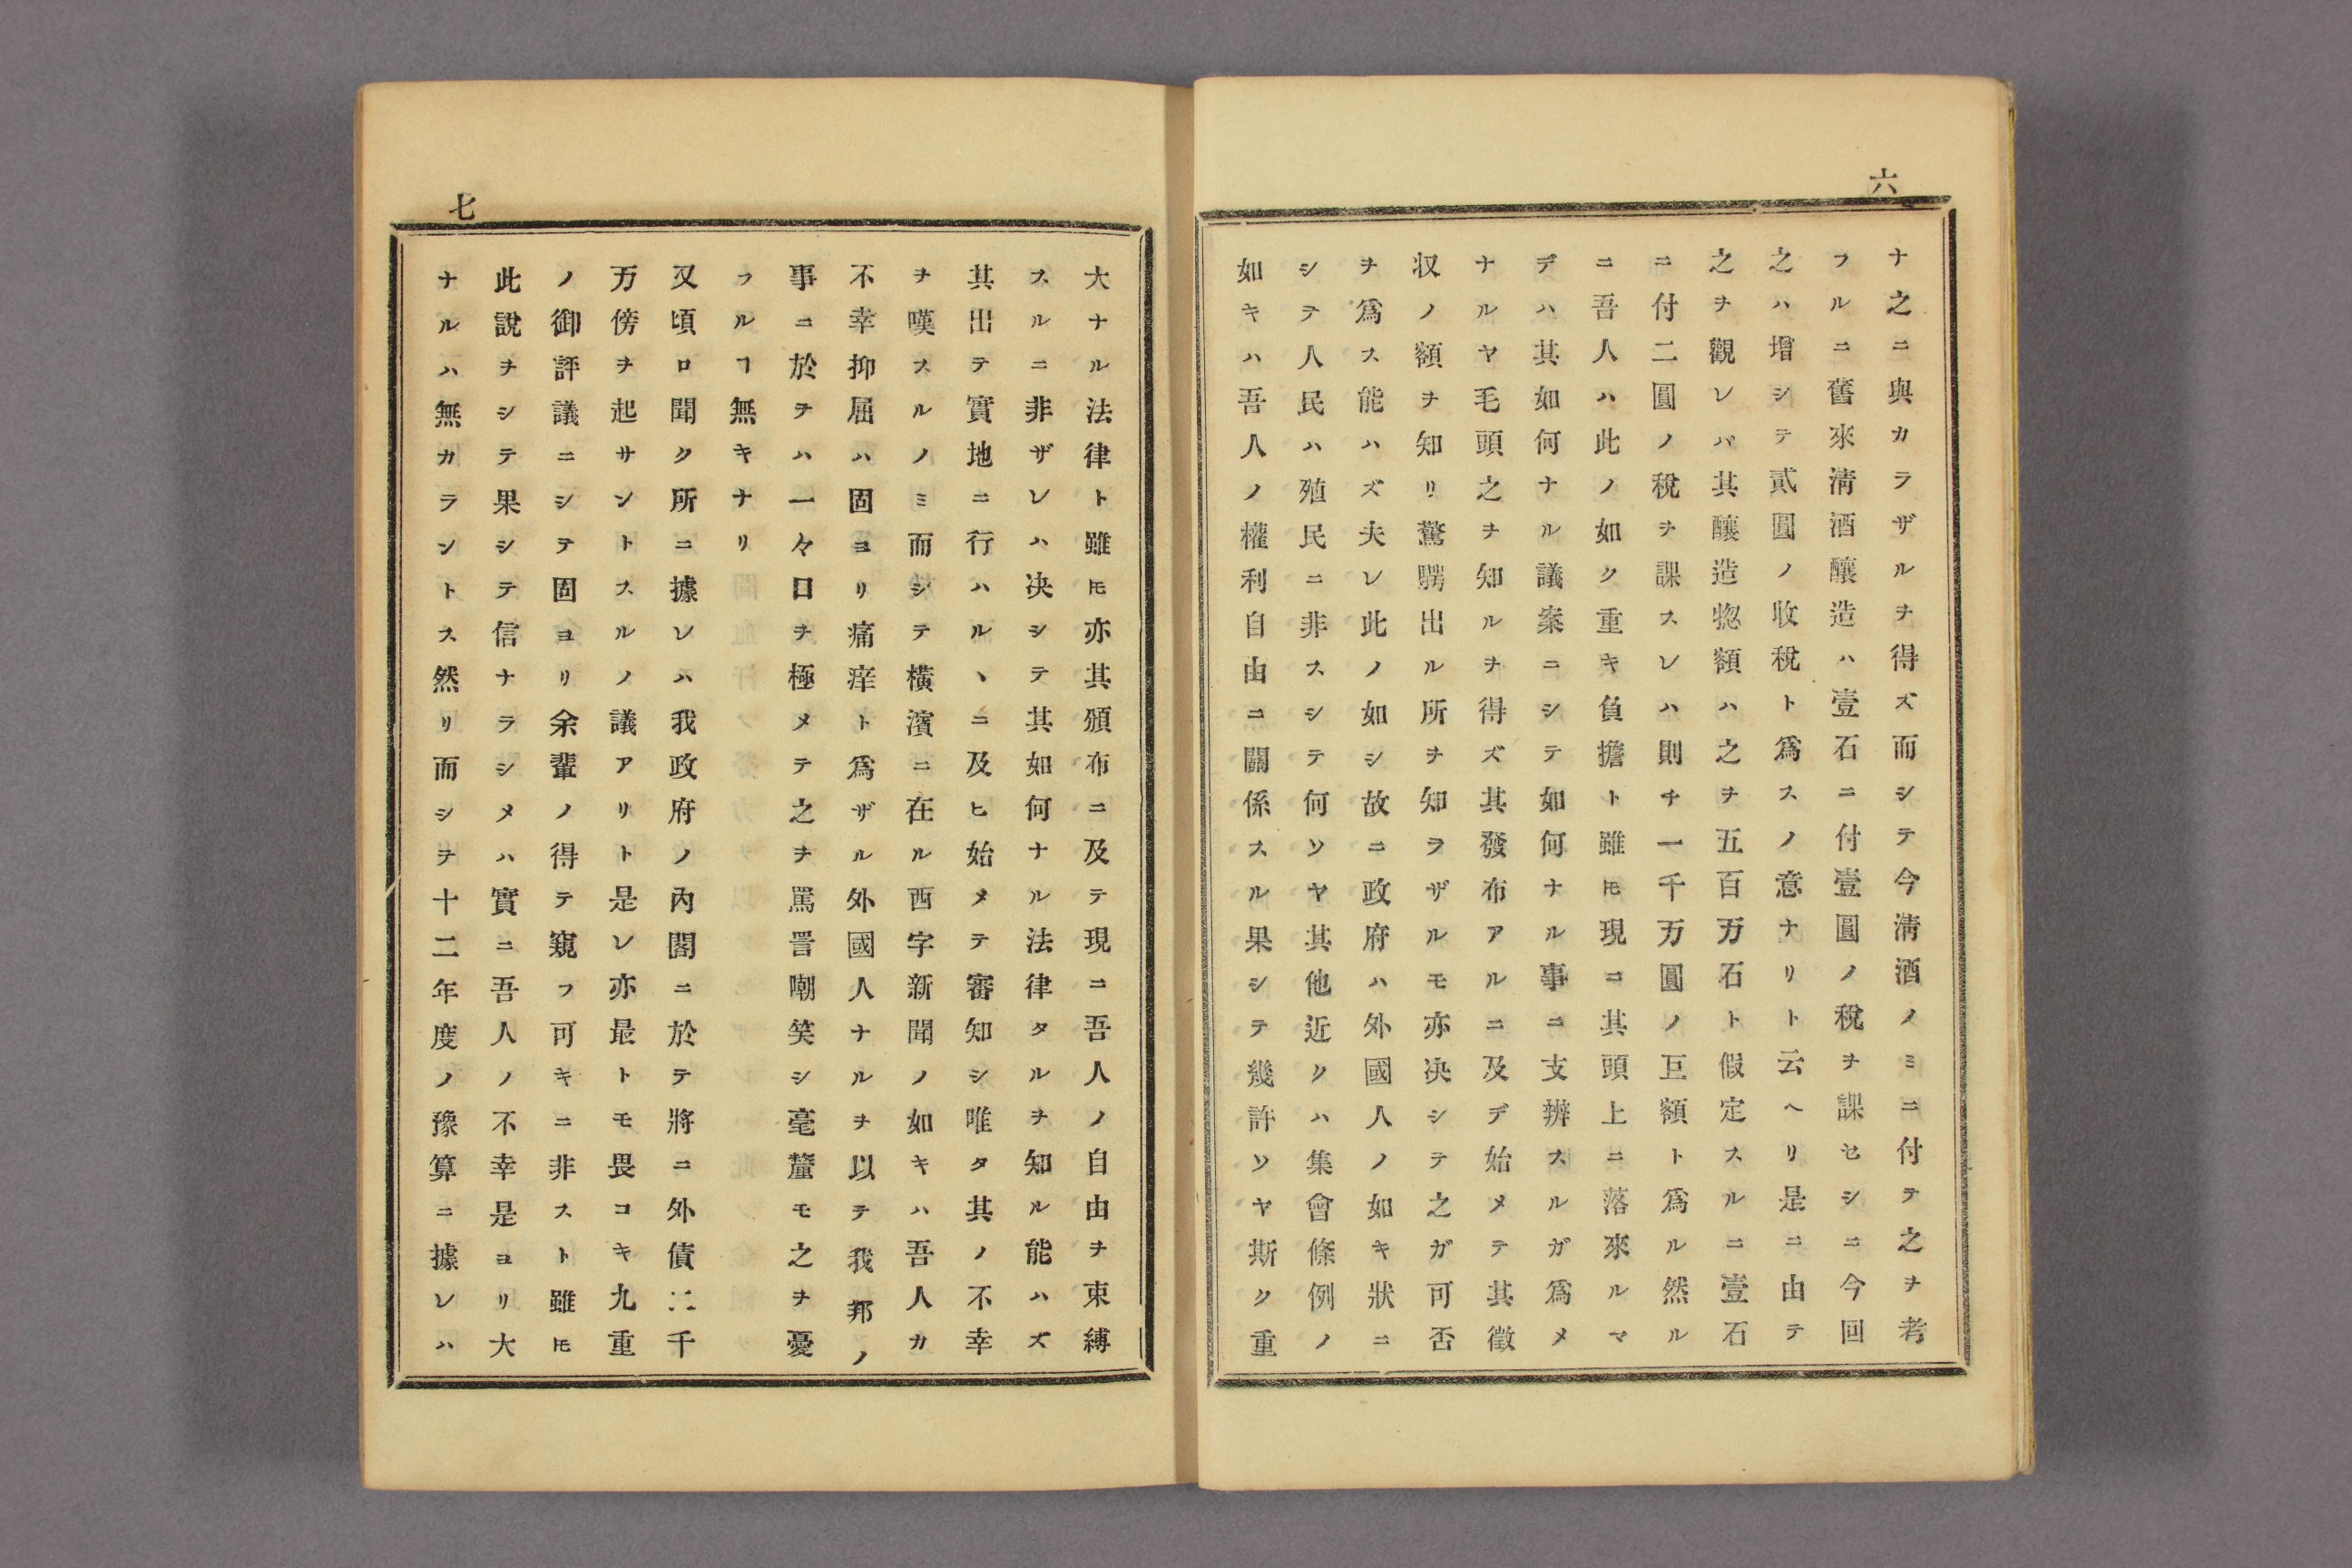 六
ナ之ニ與カラザルヲ得ズ而シテ今淸酒ノミニ付テ之ヲ考
フルニ舊來淸酒釀造ハ壹石ニ付壹圓ノ稅ヲ課セシニ今回
之ハ增シテ貳圓ノ收稅ト爲スノ意ナリト云ヘリ是ニ由テ
之ヲ觀レバ其釀造惣額ハ之ヲ五百万石ト假定スルニ壹石
ニ付二圓ノ稅ヲ課スレハ則チ一千万圓ノ巨額ト爲ル然ル
ニ吾人ハ此ノ如ク重キ負擔ト雖𪜈現ニ其頭上ニ落來ルマ
デハ其如何ナル議案ニシテ如何ナル事ニ支辨スルガ爲メ
ナルヤ毛頭之ヲ知ルヲ得ズ其發布アルニ及デ始メテ其徵
収ノ額ヲ知リ驚愕出ル所ヲ知ラザルモ亦决シテ之ガ可否
ヲ爲ス能ハズ夫レ此ノ如シ故ニ政府ハ外國人ノ如キ狀ニ
シテ人民ハ殖民ニ非スシテ何ソヤ其他近クハ集會條例ノ
如キハ吾人ノ權利自由ニ關係スル果シテ幾許ソヤ斯ク重
七
大ナル法律ト雖𪜈亦其頒布ニ及テ現ニ吾人ノ自由ヲ束縛
スルニ非ザレハ决シテ其如何ナル法律タルヲ知ル能ハズ
其出テ實地ニ行ハルヽニ及ヒ始メテ審知シ唯タ其ノ不幸
ヲ嘆スルノミ而シテ橫濱ニ在ル西字新聞ノ如キハ吾人カ
不幸抑屈ハ固ヨリ痛痒ト爲ザル外國人ナルヲ以テ我邦ノ
事ニ於テハ一々口ヲ極メテ之ヲ罵詈嘲笑シ毫釐モ之ヲ憂
フルヿ無キナリ
又頃ロ聞ク所ニ據レハ我政府ノ內閣ニ於テ將ニ外債二千
万傍ヲ起サントスルノ議アリト是レ亦最トモ畏コキ九重
ノ御評議ニシテ固ヨリ余輩ノ得テ窺フ可キニ非スト雖𪜈
此說ヲシテ果シテ信ナラシメハ實ニ吾人ノ不幸是ヨリ大
ナルハ無カラントス然リ而シヲ十二年度ノ豫算ニ據レハ